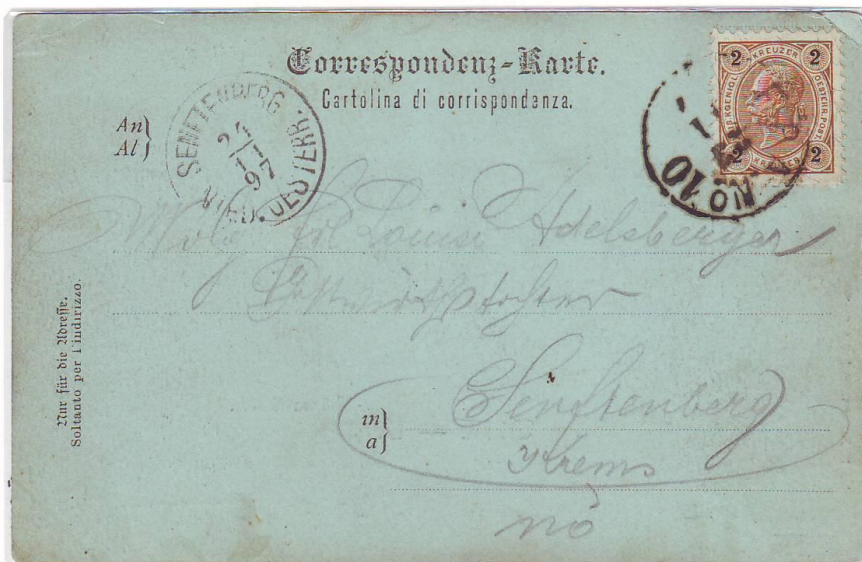 Correspondenz-Karte.
Cartolina di corrispondenza.
An}
Al}
SENFTENBERG
24
11
97
NIED. OESTERR.
2 KREUZER 2
2 KREUZER 2
NO 10
Louise Adelsberger
Gastwirthstochter
in}
a}
Senftenberg
Krems
NÖ
Nur für die Adresse.
Soltanto per l'indirizzo.